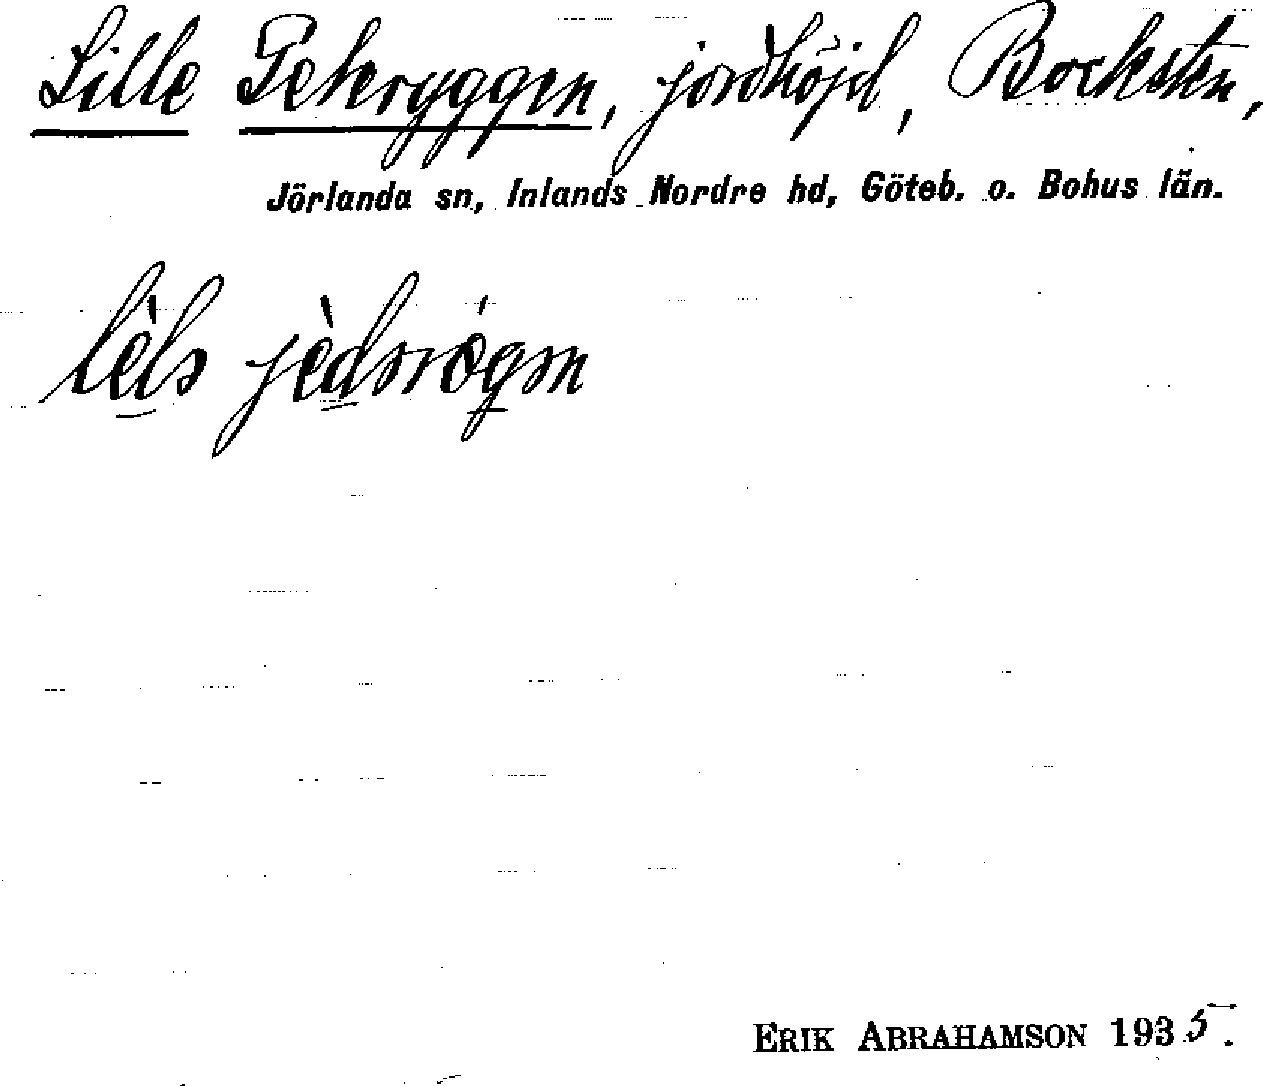 Lille Gekeryggen, jordhöjd, Bocksten,
Jörlanda sn, Inlands Nordre hd, Göteb. o. Bohus län.
ERIK ABRAHAMSON 1935.